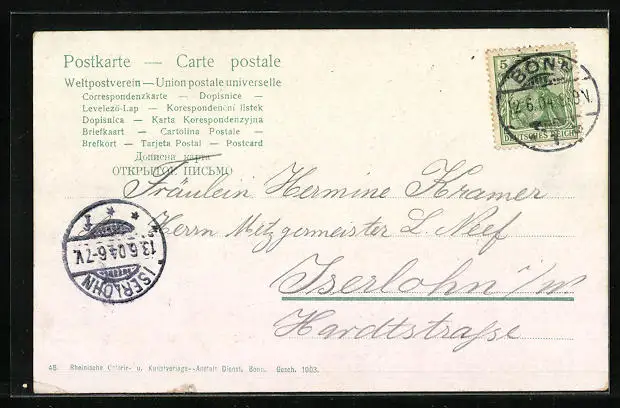 Postkarte — Carte postale
Weltpostverein — Union postale universelle
Correspondenzkarte — Dopisnice —
Levelező-Lap — Korespondenční lístek
Dopisnica — Karta Korespondenzyjna
Briefkaart — Cartolina Postale —
Brefkort — Tarjeta Postal — Postcard
Дописна карта
ОТКРЫТОЕ ПИСЬМО
5
BONN
12.6.04
DEUTSCHES REICH
Fräulein Hermine Kramer
Herrn Metzgermeister L. Neef
Iserlohn i/W
Hardtstrasse
13.6.04.6-7V.
ISERLOHN
48 Rheinische Galerie- u. Kunstverlags-Anstalt Dienst, Bonn. Gesch. 1903.